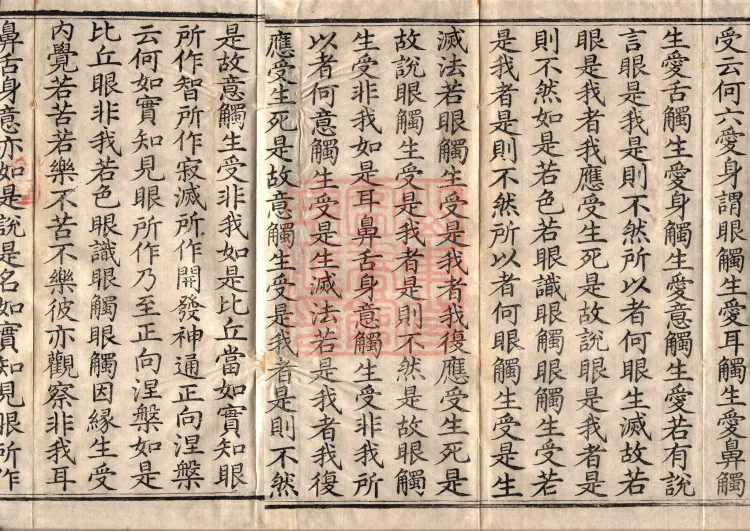 受云何六愛身謂眼觸生愛耳觸生愛鼻觸
生愛舌觸生愛身觸生愛意觸生愛若有說
言眼是我是則不然所以者何眼生滅故若
眼是我者我應受生死是故說眼是我者是
則不然如是若色若眼識眼觸眼觸生受若
是我者是則不然所以者何眼觸生受是生
滅法若眼觸生受是我者我復應受生死是
故說眼觸生受是我者是則不然是故眼觸
生受非我如是耳鼻舌身意觸生受非我所
以者何意觸生受是生滅法若是我者我復
應受生死是故意觸生受是我者是則不然
是故意觸生受非我如是比丘當如實知眼
所作智所作寂滅所作開發神通正向涅槃
云何如實知見眼所作乃至正向涅槃如是
比丘眼非我若色眼識眼觸眼觸因緣生受
內覺若苦若樂不苦不樂彼亦觀察非我耳
鼻舌身意亦如是說是名如實知見眼所作